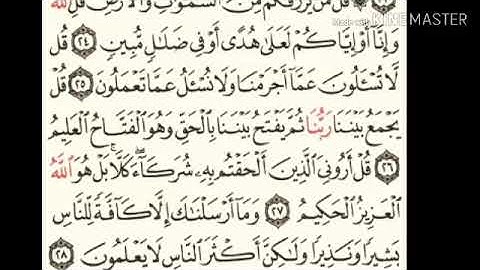 Made with KINEMASTER
۞ قُلْ مَن يَرْزُقُكُم مِّنَ السَّمَٰوَٰتِ وَالْأَرْضِ قُلِ اللَّهُ
وَإِنَّا أَوْ إِيَّاكُمْ لَعَلَىٰ هُدًى أَوْ فِي ضَلَٰلٍ مُّبِينٍ ٢٤ قُل
لَّا تُسْـَٔلُونَ عَمَّا أَجْرَمْنَا وَلَا نُسْـَٔلُ عَمَّا تَعْمَلُونَ ٢٥ قُلْ
يَجْمَعُ بَيْنَنَا رَبُّنَا ثُمَّ يَفْتَحُ بَيْنَنَا بِالْحَقِّ وَهُوَ الْفَتَّاحُ الْعَلِيمُ
٢٦ قُلْ أَرُونِيَ الَّذِينَ أَلْحَقْتُم بِهِۦ شُرَكَاءَ ۖ كَلَّا ۚ بَلْ هُوَ اللَّهُ
الْعَزِيزُ الْحَكِيمُ ٢٧ وَمَا أَرْسَلْنَٰكَ إِلَّا كَافَّةً لِّلنَّاسِ
بَشِيرًا وَنَذِيرًا وَلَٰكِنَّ أَكْثَرَ النَّاسِ لَا يَعْلَمُونَ ٢٨